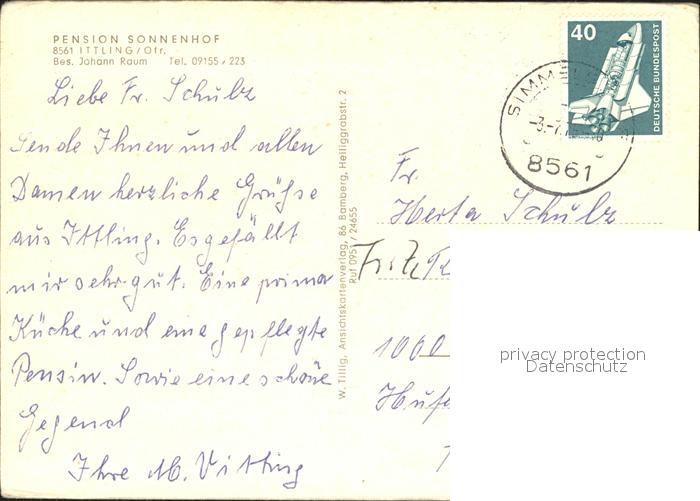 PENSION SONNENHOF
8561 ITTLING/Ofr.
Bes. Johann Raum Tel. 09155 / 223
Liebe Fr. Schulz
Sende Ihnen und allen
Damen herzliche Grüße
aus Ittling. Es gefällt
mir sehr gut. Eine prima
Küche und eine gepflegte
Pensin. Sowie eine schöne
Gegend
Ihre M. Vitting
W. Tillig, Ansichtskartenverlag, 86 Bamberg, Heiliggrabstr. 2
Ruf 0951 / 24655
40
DEUTSCHE BUNDESPOST
8561
Fr.
Herta Schulz
1000
privacy protection
Datenschutz